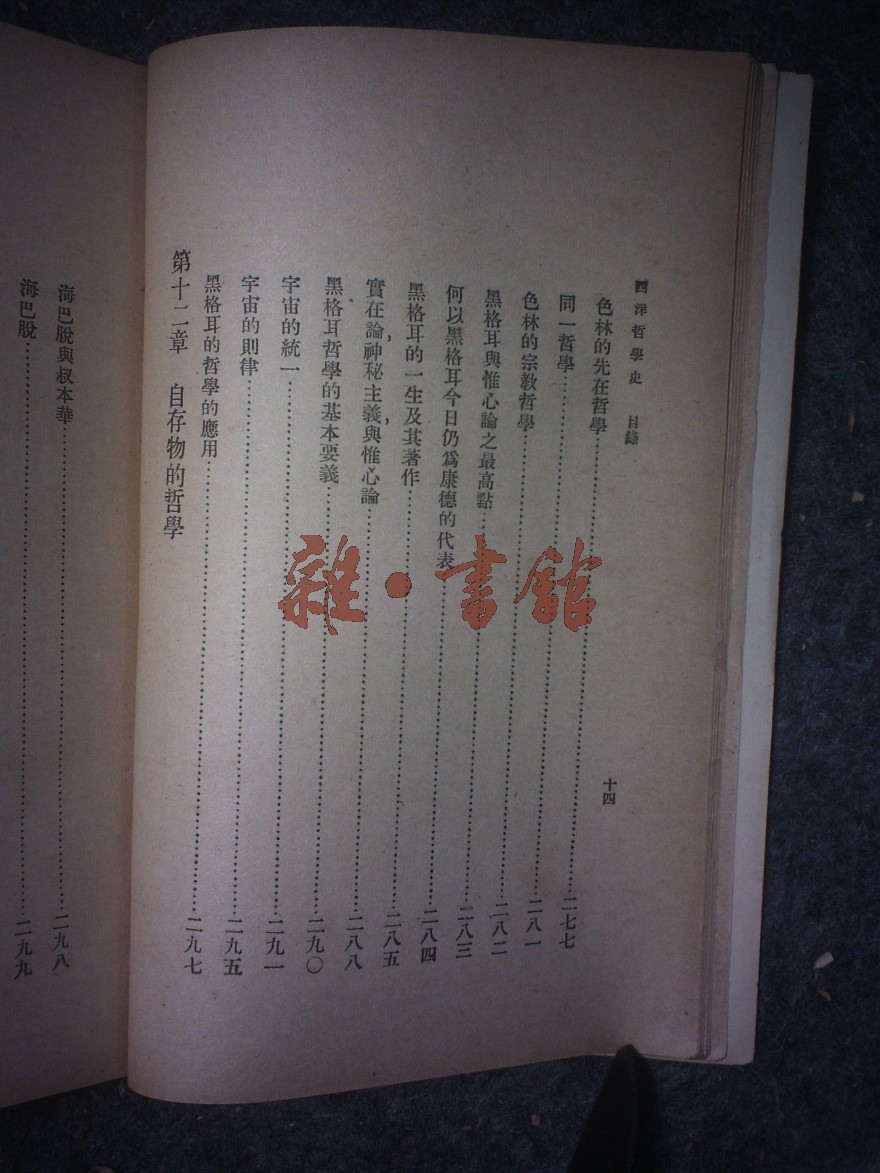 西洋哲學史 目錄
十四
色林的先在哲學……二七七
同一哲學……二八一
色林的宗教哲學……二八二
黑格耳與惟心論之最高點……二八三
何以黑格耳今日仍爲康德的代表……二八四
黑格耳的一生及其著作……二八五
實在論，神秘主義，與惟心論……二八八
黑格耳哲學的基本要義……二九〇
宇宙的統一……二九一
宇宙的則律……二九五
黑格耳的哲學的應用……二九七
第十二章 自存物的哲學
海巴脫與叔本華……二九八
海巴脫……二九九
雜·書館